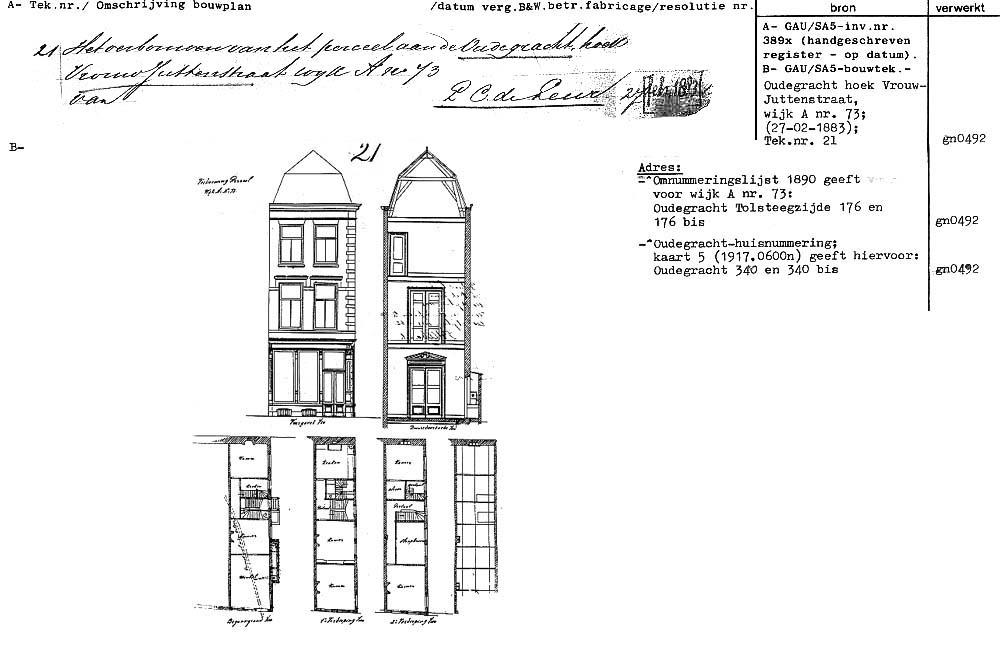 A- Tek.nr./ Omschrijving bouwplan /datum verg.B&W.betr.fabricage/resolutie nr. bron verwerkt
21 Het verbouwen van het perceel aan de Oudegracht, hoek
Vrouw Juttenstraat wijk A no 73
van P. C. de Leur 27 Feb. 1883
A- GAU/SA5-inv.nr.
389x (handgeschreven
register - op datum).
B- GAU/SA5-bouwtek.-
Oudegracht hoek Vrouw-
Juttenstraat,
wijk A nr. 73;
(27-02-1883);
Tek.nr. 21 gn0492
B-
21
Verbouwing Perceel
Wijk A. No. 73
Adres:
-^Omnummeringslijst 1890 geeft
voor wijk A nr. 73:
Oudegracht Tolsteegzijde 176 en
176 bis gn0492
-^Oudegracht-huisnummering;
kaart 5 (1917.0600n) geeft hiervoor:
Oudegracht 340 en 340 bis gn0492
Voorgevel
Doorsnede
Kamer Keuken Kamer
Kamer Kamer
Winkel Kamer Kamer
Beganegrond 1e Verdieping 2e Verdieping